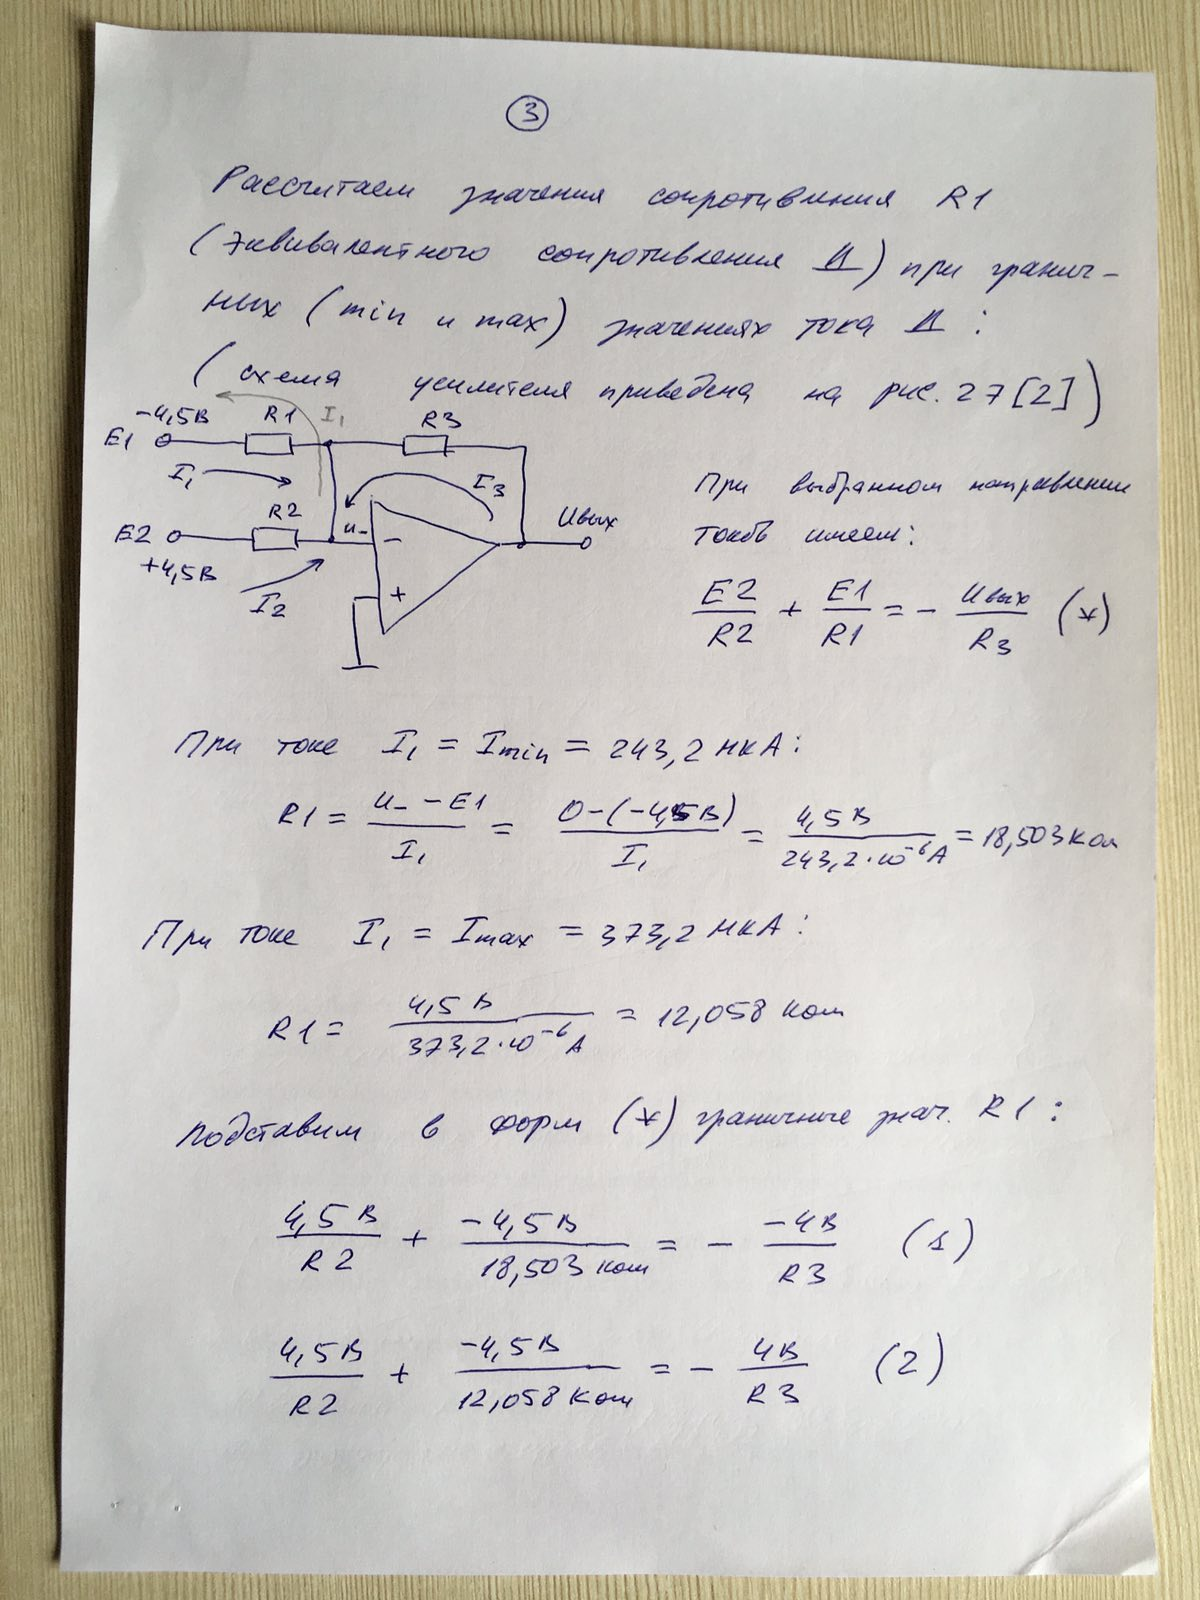 3
Рассчитаем значения сопротивления R1
(эквивалентного сопротивления Д) при гранич-
ных (min и max) значениях тока Д:
(схема усилителя приведена на рис. 27 [2])
-4,5В R1 I₁ R3
E1
I₁ I₃
R2 U₋ Uвых
E2 -
+4,5В +
I₂
При выбранном направлении
токов имеем:
E2/R2 + E1/R1 = - Uвых/R3 (*)
При токе I₁ = Imin = 243,2 мкА:
R1 = (U₋ - E1)/I₁ = (0-(-4,5В))/I₁ = 4,5В/(243,2·10⁻⁶А) = 18,503 Ком
При токе I₁ = Imax = 373,2 мкА:
R1 = 4,5В/(373,2·10⁻⁶А) = 12,058 Ком
Подставим в форм (*) граничные знач. R1:
4,5В/R2 + -4,5В/18,503 Ком = - -4В/R3 (1)
4,5В/R2 + -4,5В/12,058 Ком = - 4В/R3 (2)